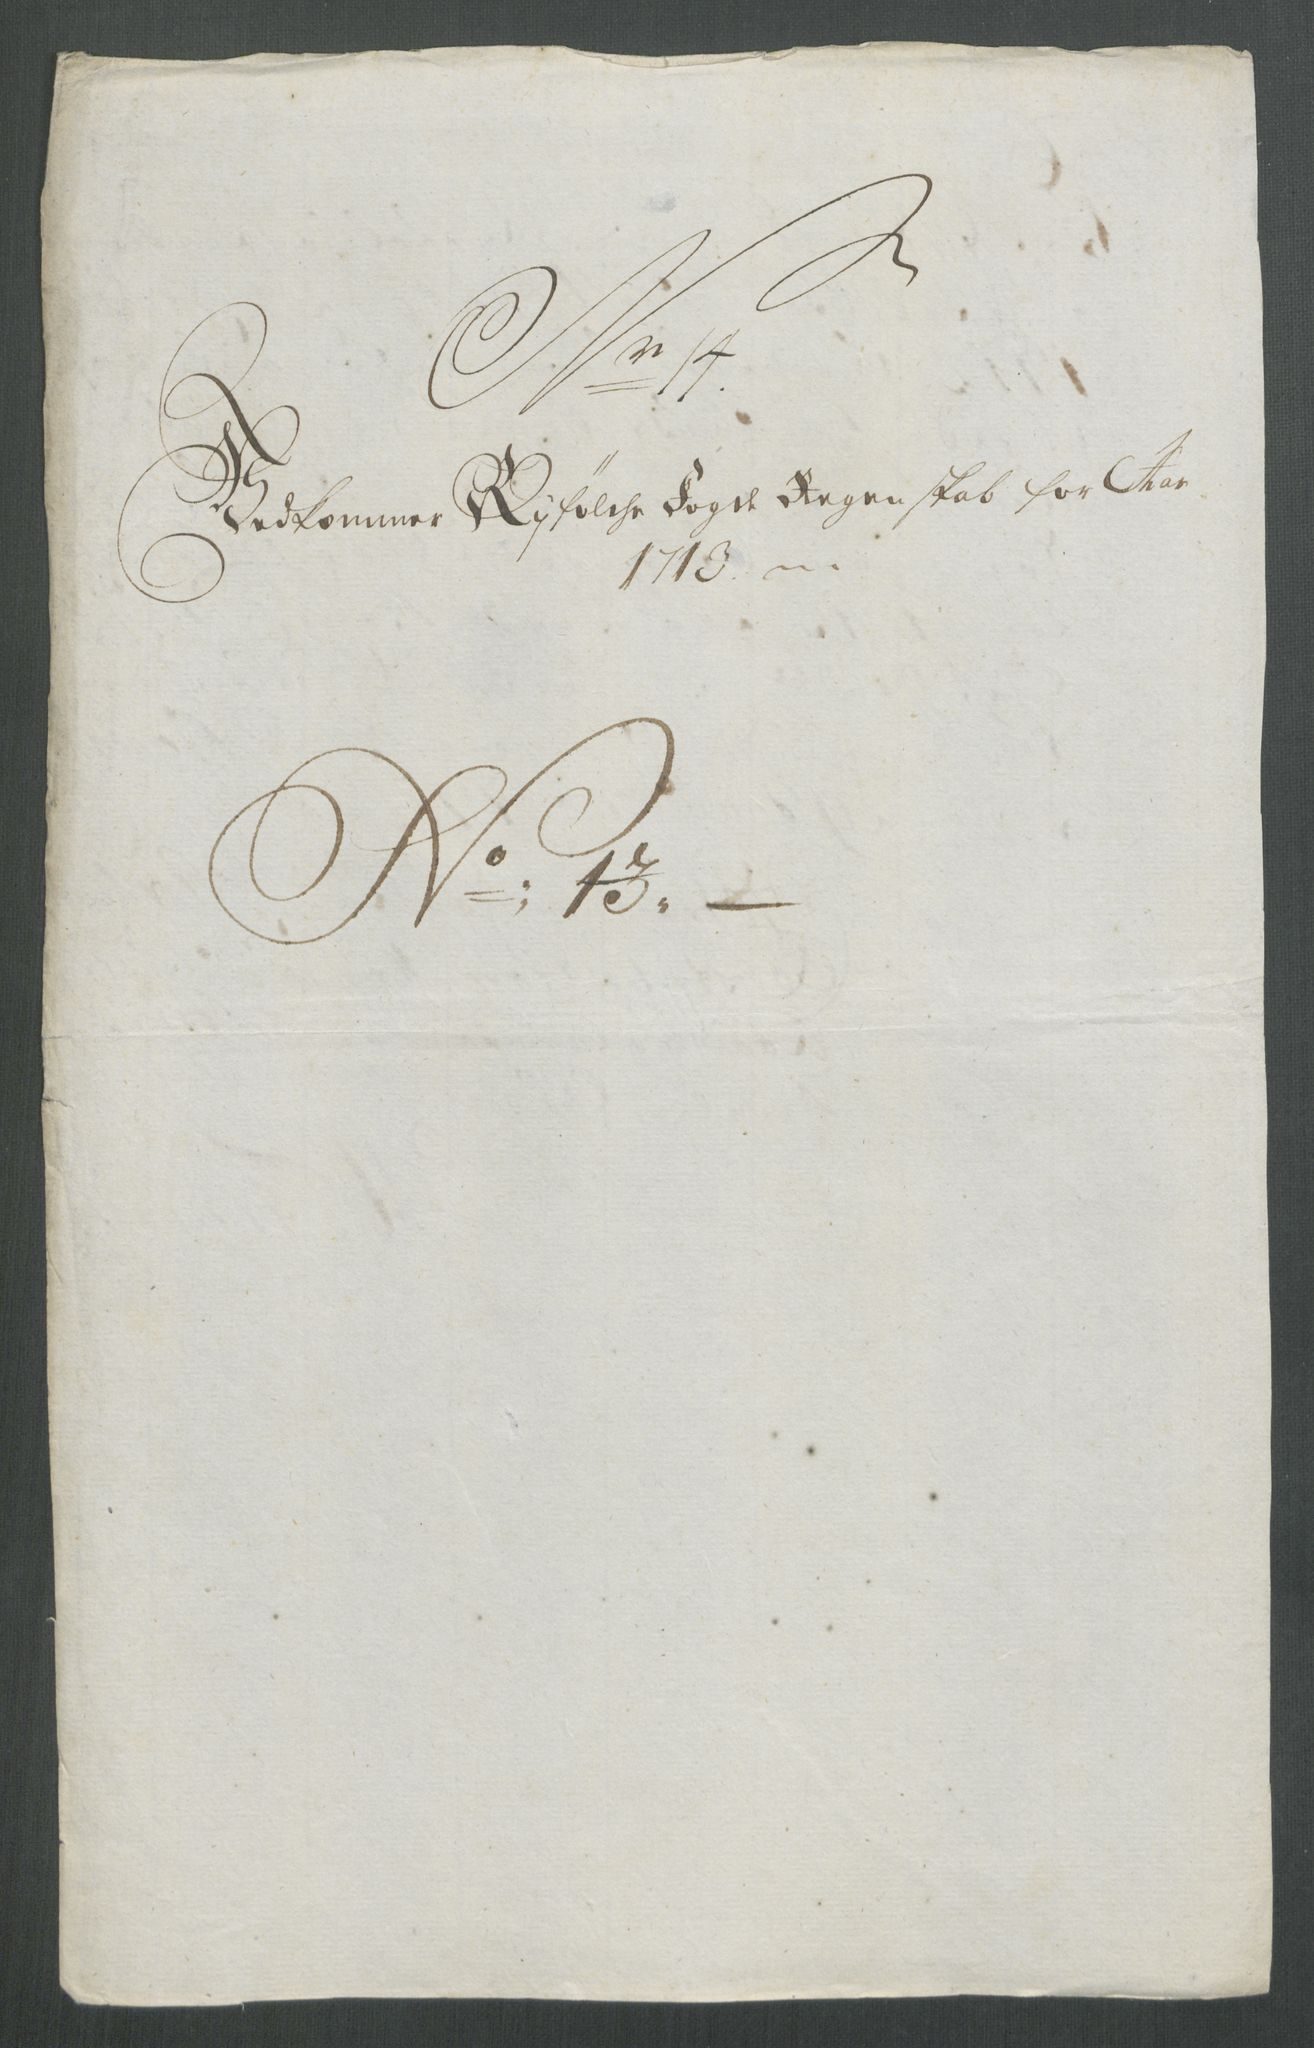 Nr 14.
Vedkommer Ryfolche Fogde Regenskab for Aar
1713.
No: 13.